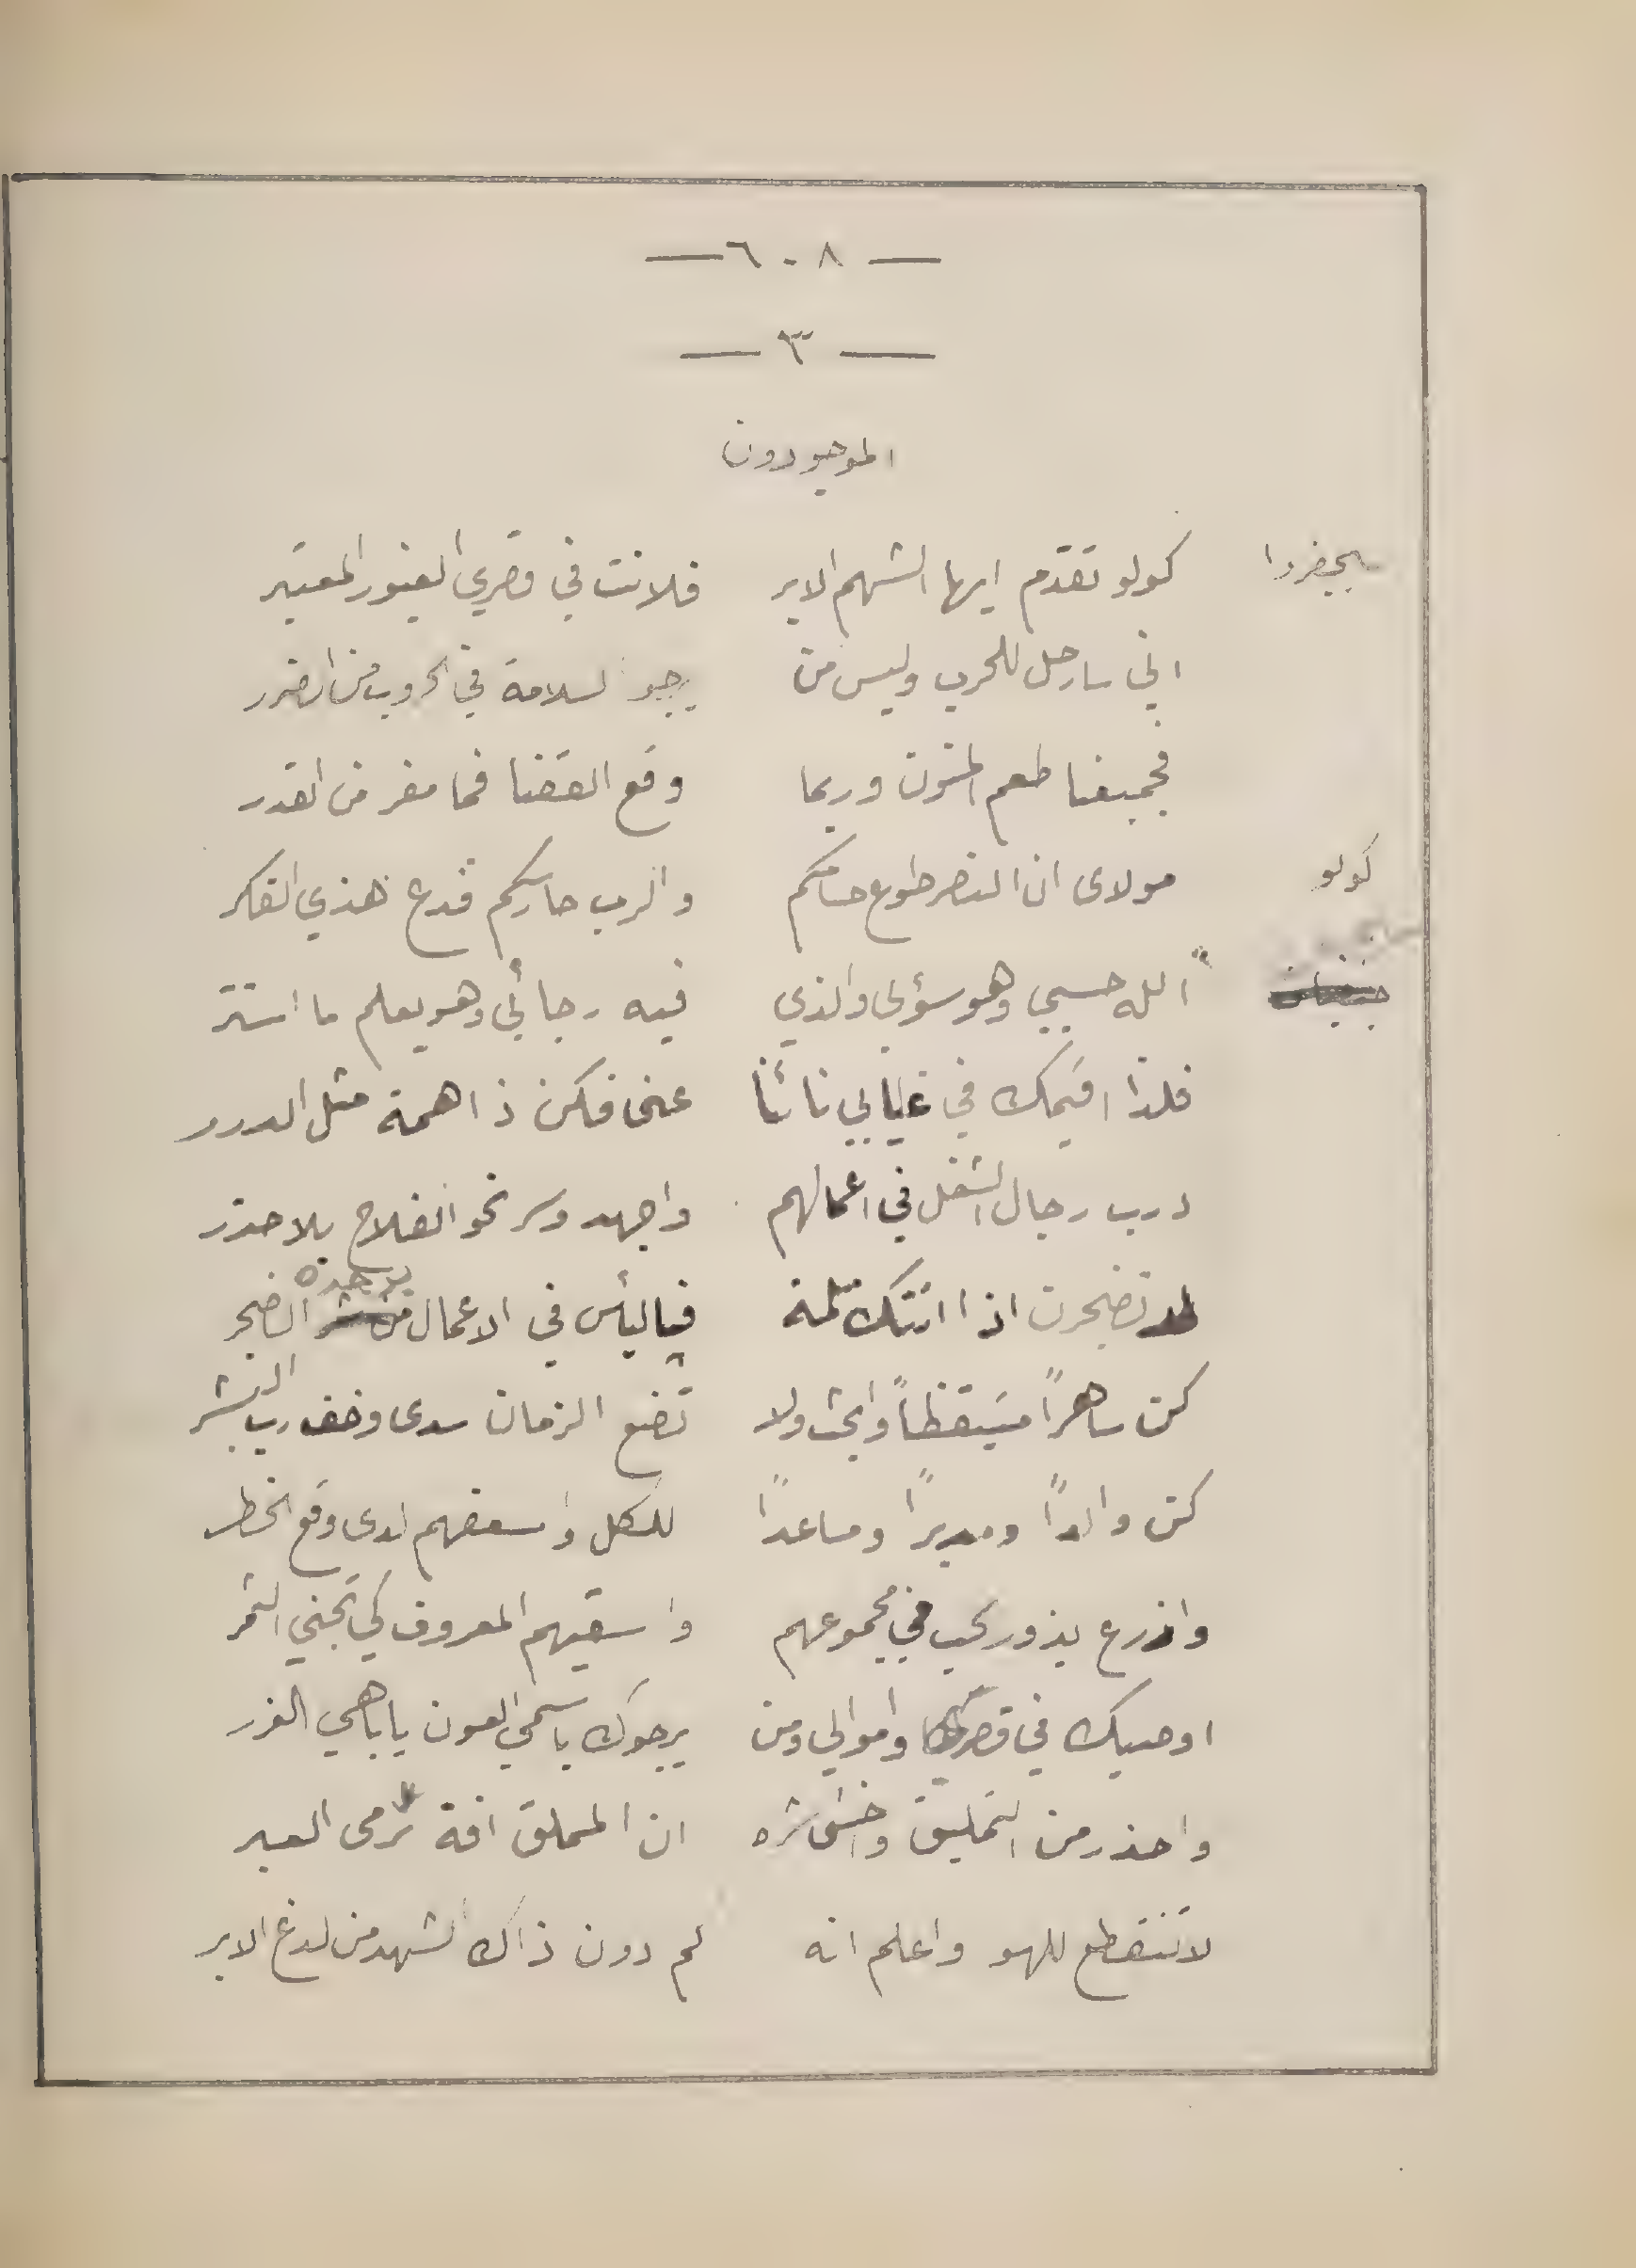 — ٦٠٨ —
— ٣ —
الموجودون
كولو تقدم ايها الشهم الابر فلانت في قصري الغيور المعتبر
اني سارحل للحرب وليس من يرجو السلامة في الحروب من الضرر
فجميعنا طعم المنون وربما وقع القضا فما مفر من القدر
كولو مولاى ان النصر طوع حسامكم والرب حارسكم فدع هذي الفكر
الله حسبي وهو سؤلي والذي فيه رجائي وهو يعلم ما استتر
فلذا اقيمك في غيابي نائباً عنى فكن ذا همة مثل الدرر
درب رجال الشغل في اعمالهم واجهد وسر نحو الفلاح بلا حذر
لا تضجرن اذا اتتك ملمة فاليأس في الاعمال يوجده الضجر
كن ساهراً متيقظاً وابحث ولا تضع الزمان سدى وخف رب البشر
كن والداً ومديراً ومساعداً للكل واسعفهم لدى وقع الخطر
وازرع بذور الحب في مجموعهم واسقيهم المعروف كي تجني الثمر
اوصيك في قصري واموالي ومن يرجوك باسمي العون يا باهي الغرر
واحذر من التمليق واخش شره ان المملق افة ترمى العبر
لا تنقطع للهو واعلم انه لم دون ذاك الشهد من لدغ الابر